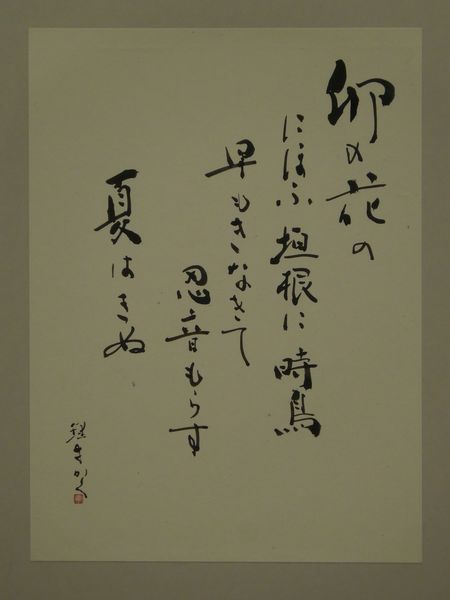 卯の花の
にほふ垣根に時鳥
早もきなきて
忍音もらす
夏はきぬ